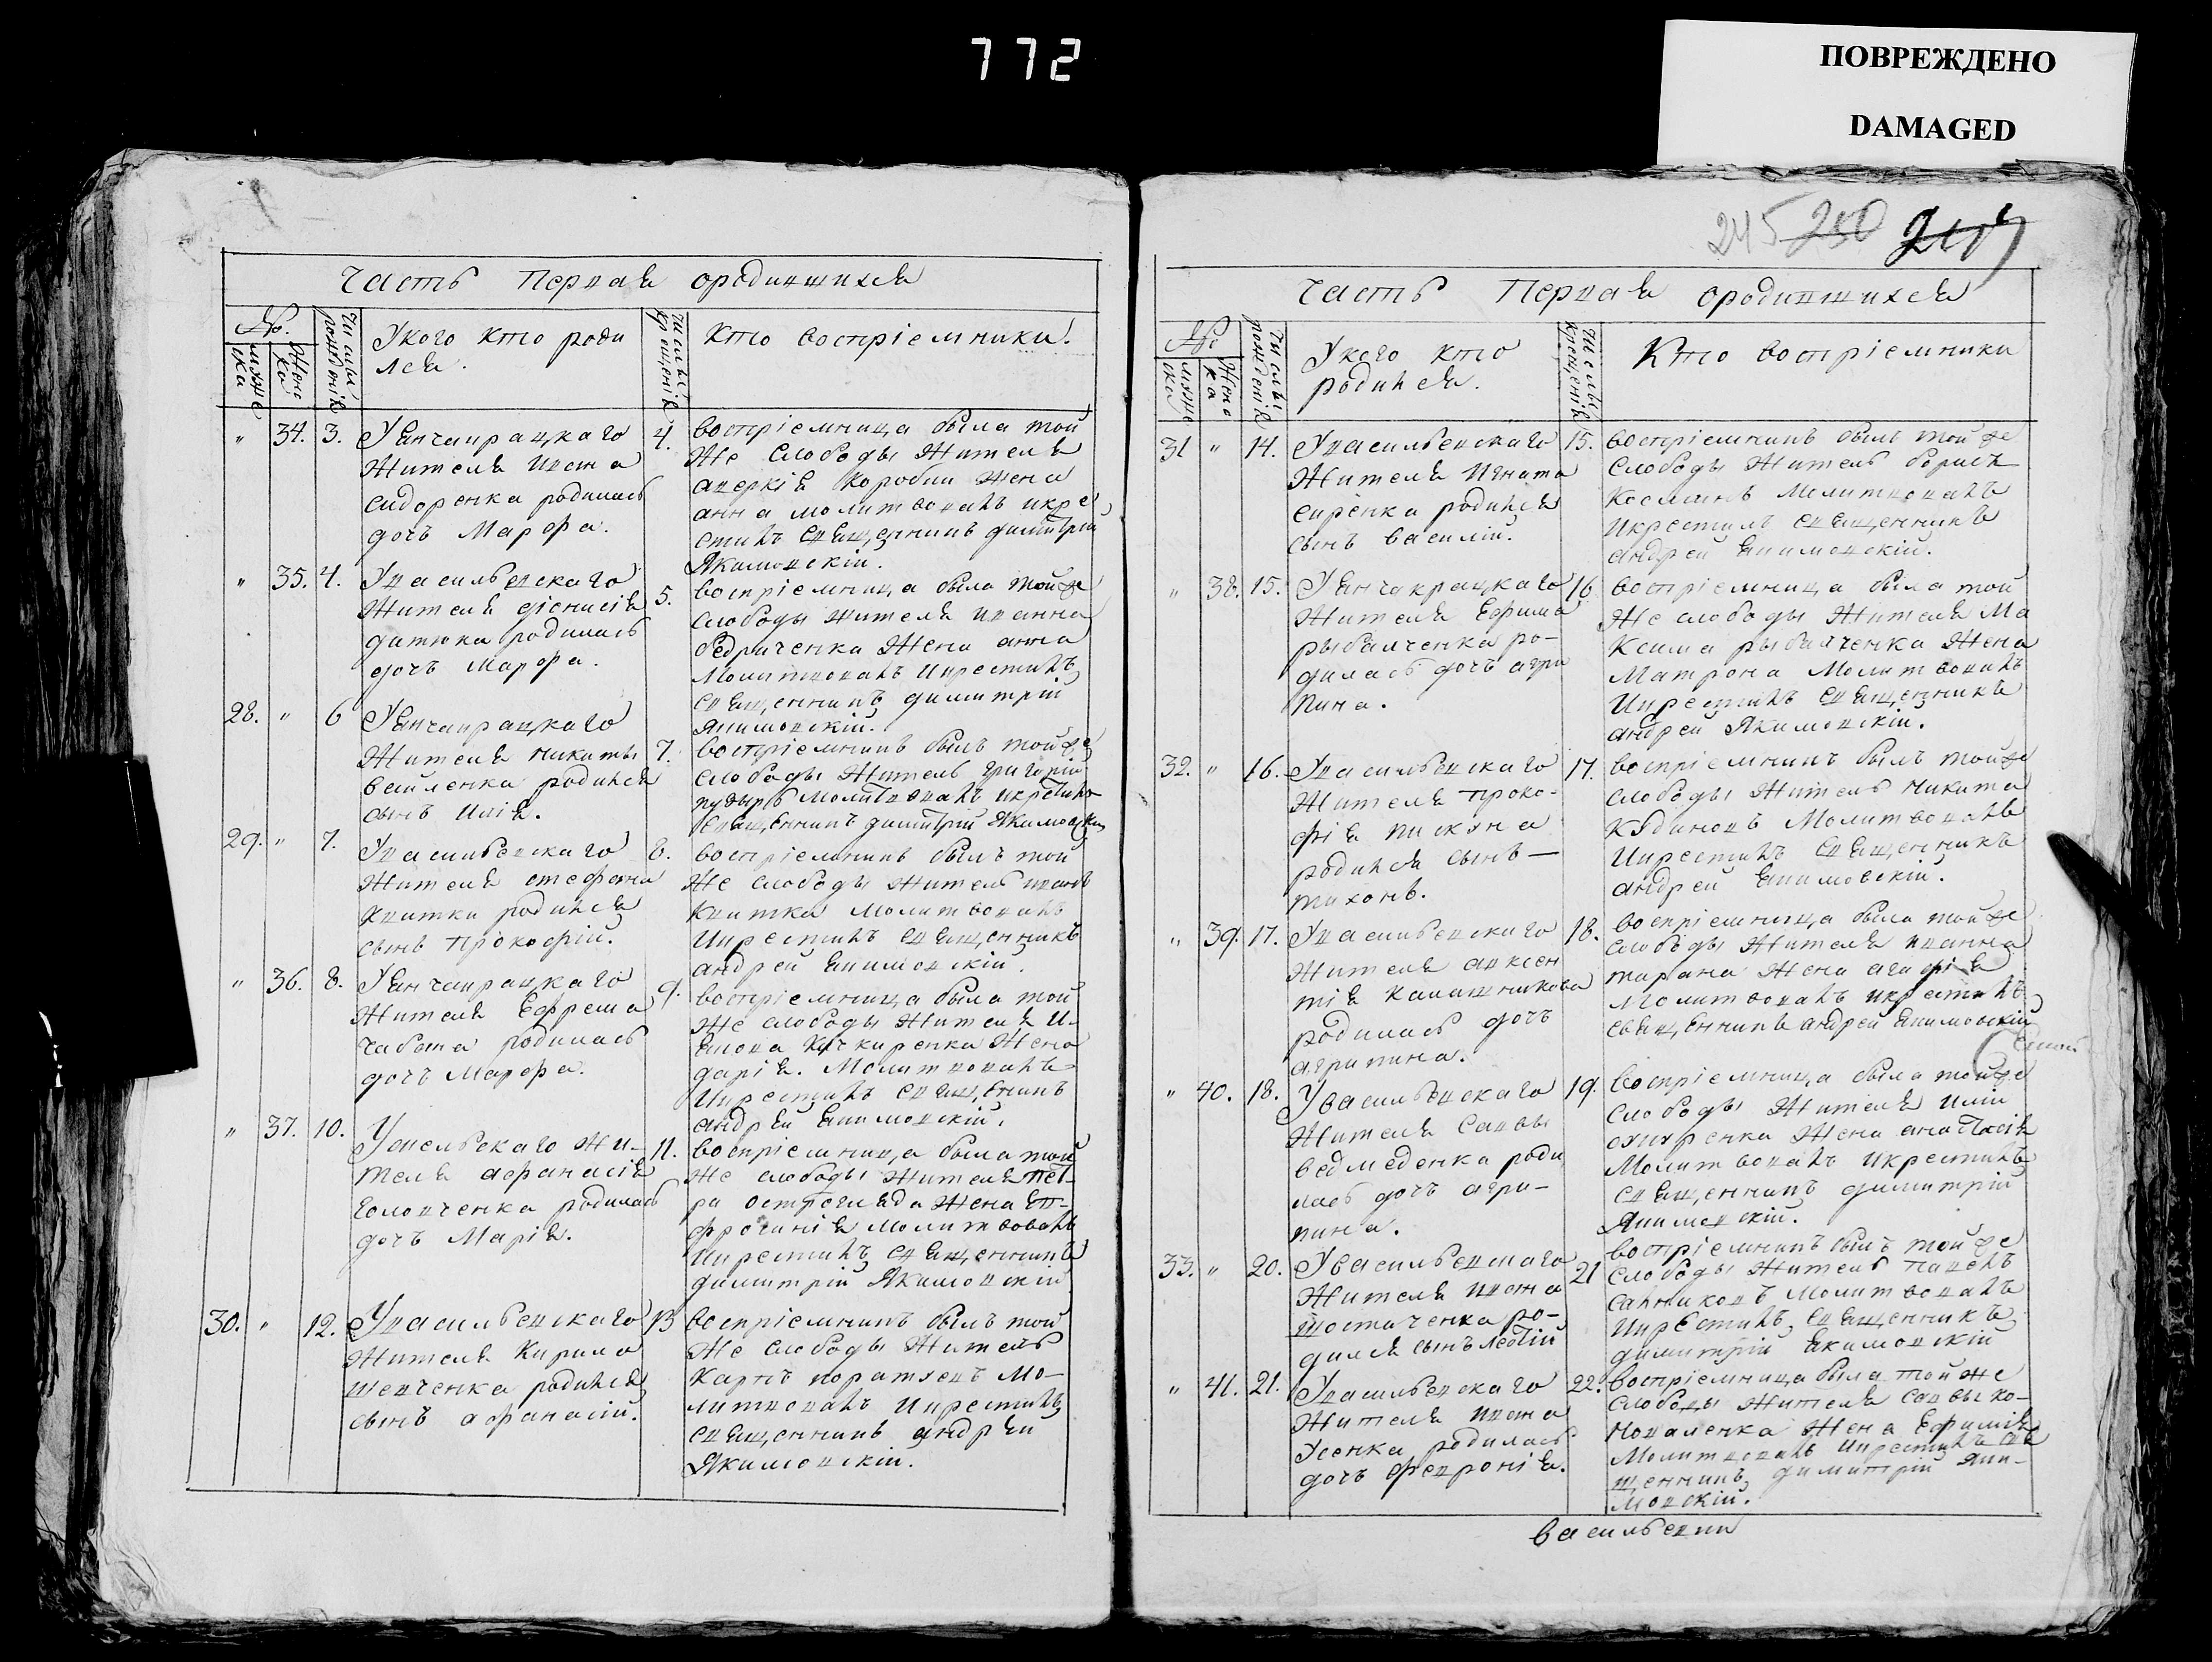 772
ПОВРЕЖДЕНО
DAMAGED
245 250
Часть Первая ородившихся
№. мужеска женска
числы рожденія
Укого кто роди
лся.
числы крещенія
Кто воспріемники.
" 34. 3.
Уянчакрацкаго
Жителя Ивана
Сидоренка родилась
дочь Марфа.
4.
воспріемница была той
Же Слободы Жителя
аверкія Коробки Жена
анна молитвовалъ икре
стилъ священникъ димитрій
Якимовскій.
" 35. 4.
Увасильевскаго
Жителя діонисія
родилась
дочь Марфа.
5.
воспріемница была тойже
Слободы жителя иванна
Жена анна
Молитвовалъ икрестилъ
священникъ димитрій
Якимовскій.
28. " 6
Уянчакрацкаго
Жителя никиты
родился
сынъ илія.
7.
воспріемникъ былъ тойже
Слободы Житель григорій
пузырь молитвовалъ икрестилъ
священникъ димитрій Якимовскій
29. " 7.
Увасильевскаго
Жителя стефана
Квитки родился
сынъ прокофій.
8.
воспріемникъ былъ той
Же слободы житель иванъ
Квитка молитвовалъ
икрестилъ священникъ
андрей якимовскій.
" 36. 8.
Уянчакрацкаго
Жителя Ефрема
Чабана родилась
дочь Марфа.
9.
воспріемница была той
Же слободы Жителя и-
якова Жена
дарія. Молитвовалъ
икрестилъ священикъ
андрей якимовскій.
" 37. 10.
Жи-
теля афанасія
Головченка родилась
дочь Марія.
11.
воспріемница была той
Же слободы жителя пет-
ра остогляда Жена ев-
фросинія молитвовалъ
икрестилъ священникъ
димитрій Якимовскій
30. " 12.
Увасильевскаго
Жителя Кирила
шевченка родился
сынъ афанасій.
13
воспріемникъ былъ той
Же Слободы Житель
Карпъ Мо-
литвовалъ икрестилъ
священникъ андрей
Якимовскій.
Часть Первая ородившихся
№ мужеска женска
числы рожденія
Укого кто
родился.
числы крещенія
Кто воспріемники
31 " 14.
Увасильевскаго
Жителя Игната
родился
сынъ василій.
15.
воспріемникъ былъ той же
Слободы Житель борисъ
Молитвовалъ
икрестилъ священникъ
андрей якимовскій.
" 38. 15.
Уянчакрацкаго
Жителя Ефима
рыбалченка ро-
дилась дочь агри
пина.
16.
воспріемница была той
Же слободы Жителя Ма
Ксима рыбалченка Жена
Матрона Молитвовалъ
икрестилъ священникъ
андрей Якимовскій.
32. " 16.
Увасильевскаго
Жителя проко-
фія пискуна
родился сынъ—
тихонъ.
17.
воспріемникъ былъ тойже
слободы Житель никита
Кудиновъ Молитвовалъ
икрестилъ священникъ
андрей якимовскій.
" 39. 17.
Увасильевскаго
Жителя авксен
тія Калашникова
родилась дочь
агрипина.
18.
воспріемница была тойже
слободы Жителя иванна
тарана Жена агафія
Молитвовалъ икрестилъ
священникъ андрей якимовскій
" 40. 18.
Увасильевскаго
Жителя Савы
ведмеденка роди
лась дочь агри-
пина.
19.
воспріемница была тойже
слободы Жителя иліи
Жена анастасія
Молитвовалъ икрестилъ
священникъ димитрій
Якимовскій.
33. " 20.
Увасильевскаго
Жителя ивана
шостаченка ро-
дился сынъ
21
воспріемникъ былъ той же
слободы Житель павелъ
Санниковъ Молитвовалъ
икрестилъ священникъ
димитрій якимовскій
" 41. 21.
Увасильевскаго
Жителя ивана
Усенка родилась
дочь февронія.
22.
воспріемница была той же
слободы жителя савы ко-
новаленка Жена Ефимія
Молитвовалъ икрестилъ свя
щенникъ димитрій яки-
мовскій.
васильевки